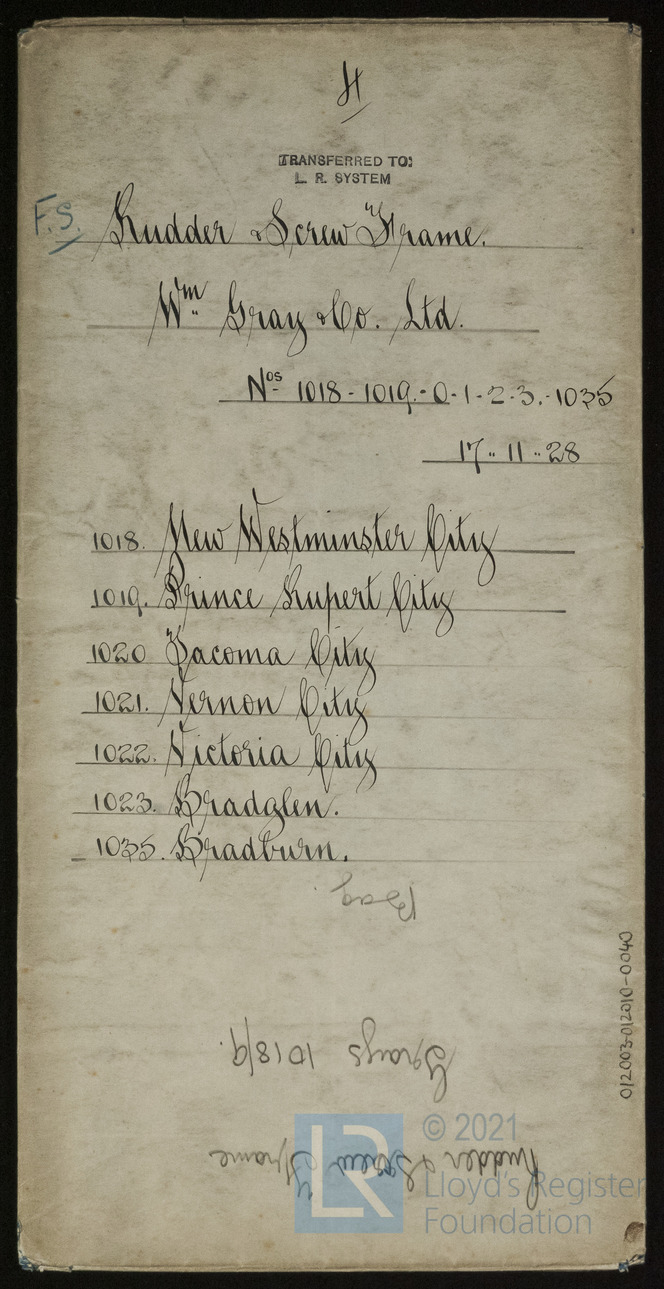 H
TRANSFERRED TO:
L. R. SYSTEM
F.S.
Rudder & Screw Frame.
Wm Gray & Co. Ltd.
Nos 1018 - 1019. - 0 - 1 - 2 - 3. - 1035
17 .. 11 .. 28
1018. New Westminster City
1019. Prince Rupert City
1020 Tacoma City
1021. Vernon City
1022. Victoria City
1023. Bradglen.
1035. Bradburn.
Bag.
Grays 1018/9.
Rudder & Screw Frame
012003-012010-0040
LR
© 2021
Lloyd's Register
Foundation